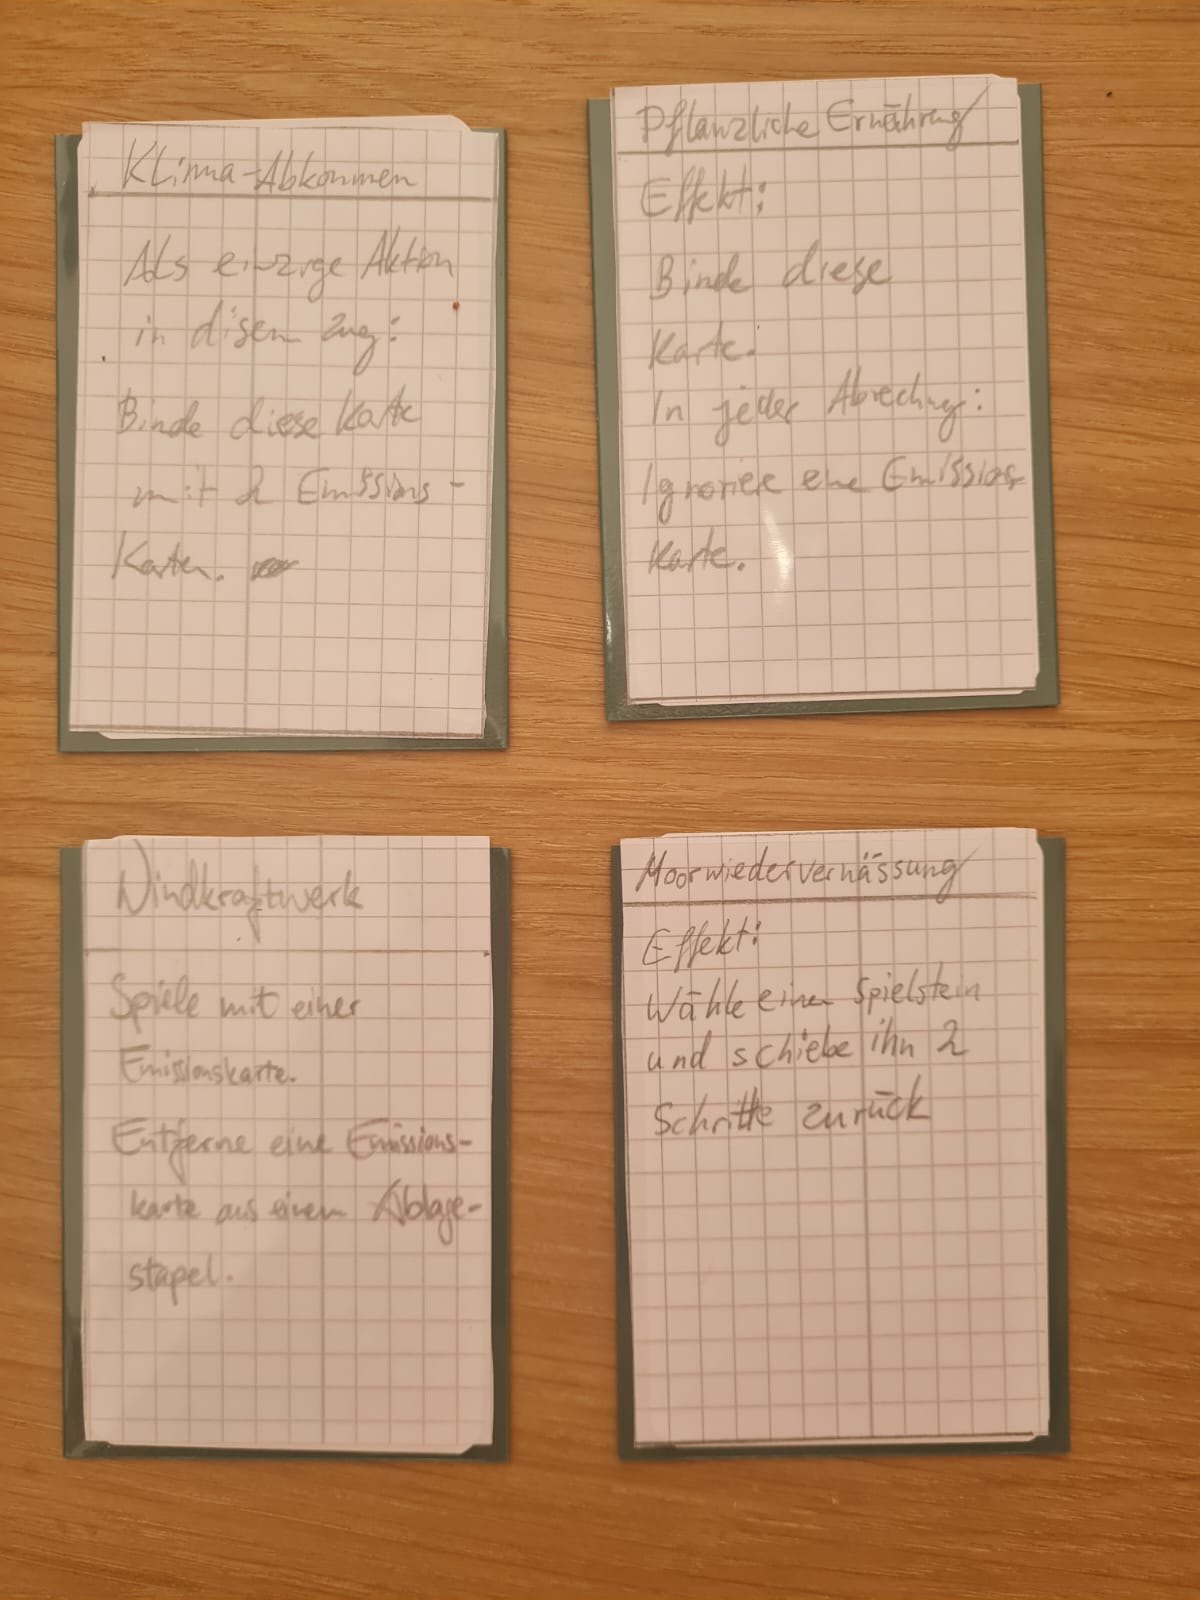 Klima-Abkommen
Als einzige Aktion
in disem Zug:
Binde diese Karte
mit 2 Emissions-
Karten.
Pflanzliche Ernährung
Effekt:
Binde diese
Karte.
In jeder Abrechnug:
Ignoriere eine Emissions-
karte.
Windkraftwerk
Spiele mit einer
Emissionskarte.
Entferne eine Emissions-
karte aus einem Ablage-
stapel.
Moorwiedervernässung
Effekt:
Wähle einen Spielstein
und schiebe ihn 2
Schritte zurück